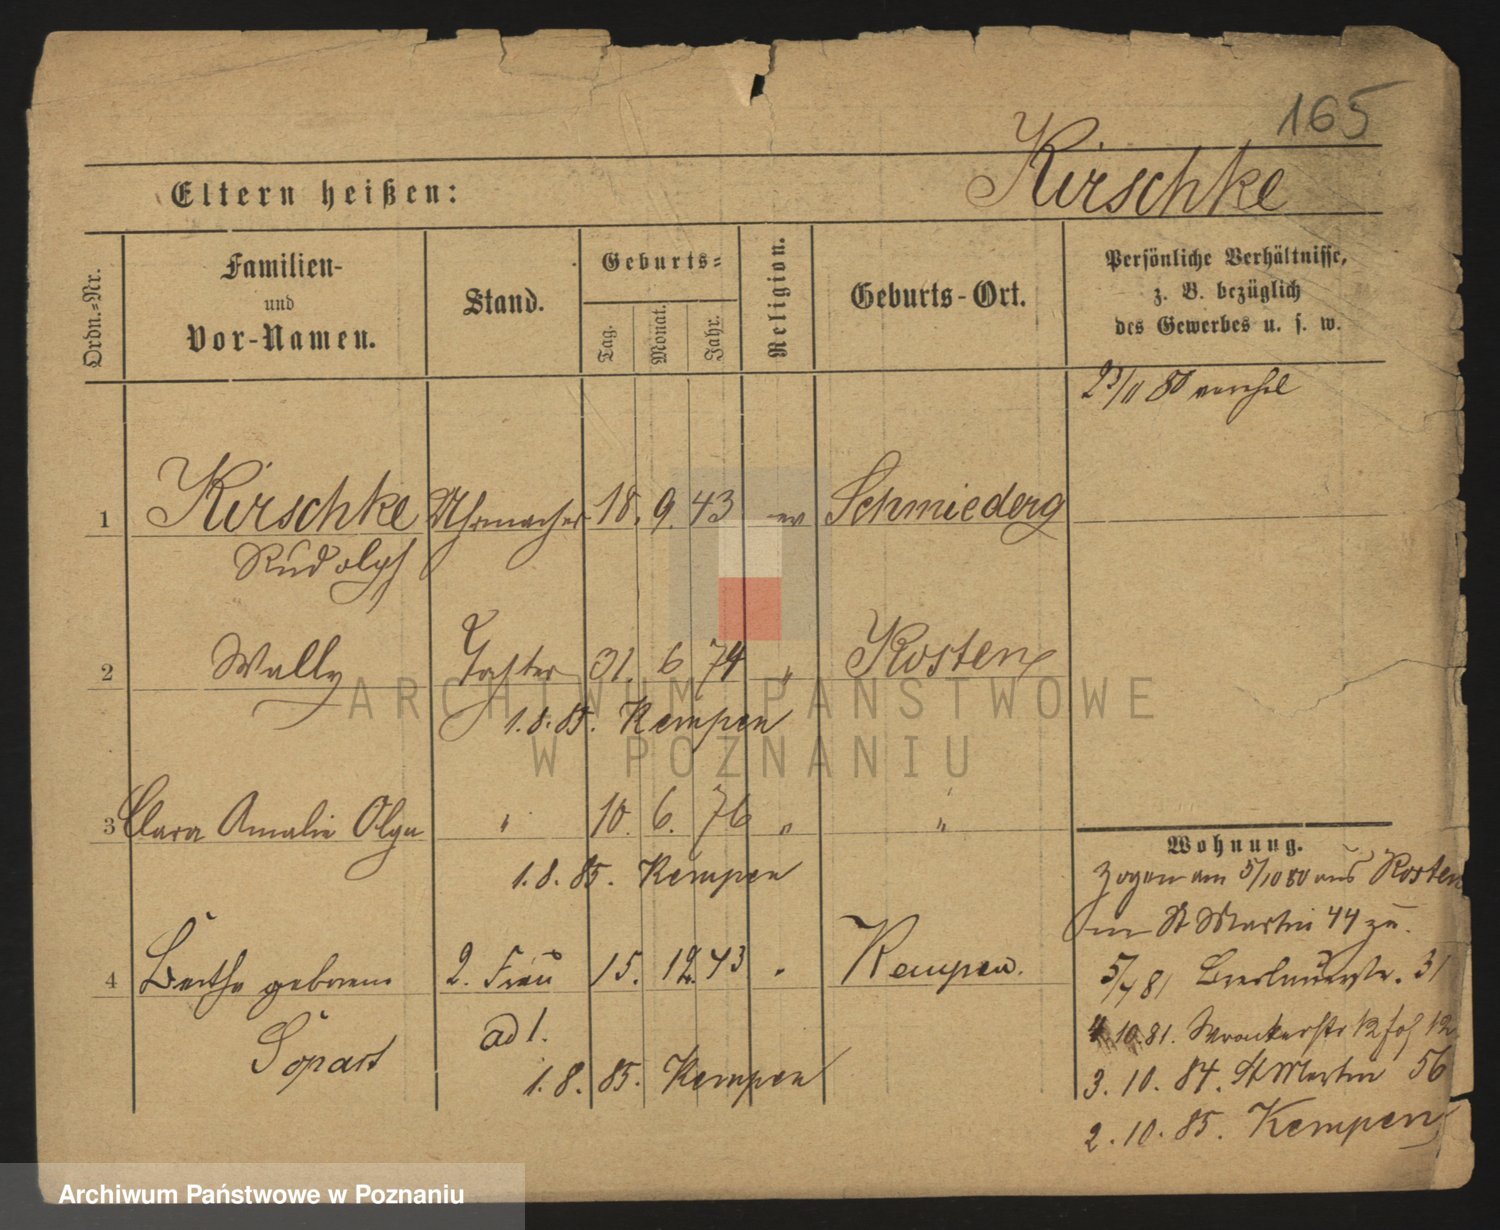 165
Kirschke
Eltern heißen:
Ordn.-Nr.
Familien-
und
Vor-Namen.
Stand.
Geburts-
Tag.
Monat.
Jahr.
Religion.
Geburts-Ort.
Persönliche Verhältnisse,
z. B. bezüglich
des Gewerbes u. s. w.
80
1 Kirschke Uhrmacher 18. 9. 43 ev Schmiederg
Rudolph
2 Wally Tochter 31. 6 74 " Kosten
1. 8. 85. Kempen
3 Clara Amalie Olga " 10. 6. 76 " "
1. 8. 85. Kempen
4 Berthe geborene 2. Frau 15. 12. 43 " Kempen.
ad 1.
1. 8. 85. Kempen
Wohnung.
Zogen am 5/10 80 aus Kosten
St Martin 44 zu.
5/4 81 Breslauerstr. 31
4 10. 81. Wronkerstr 12
3. 10. 84. St Martin 56
2. 10. 85. Kempen
ARCHIWUM PAŃSTWOWE
W POZNANIU
Archiwum Państwowe w Poznaniu